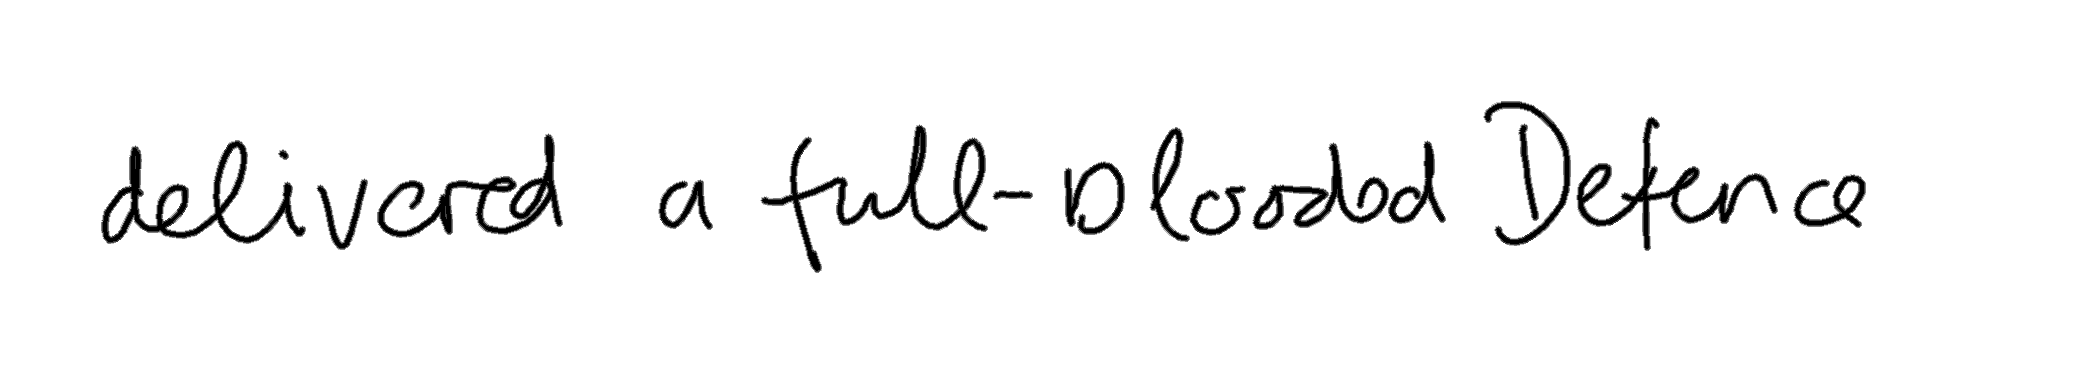 delivered a full-blooded Defence